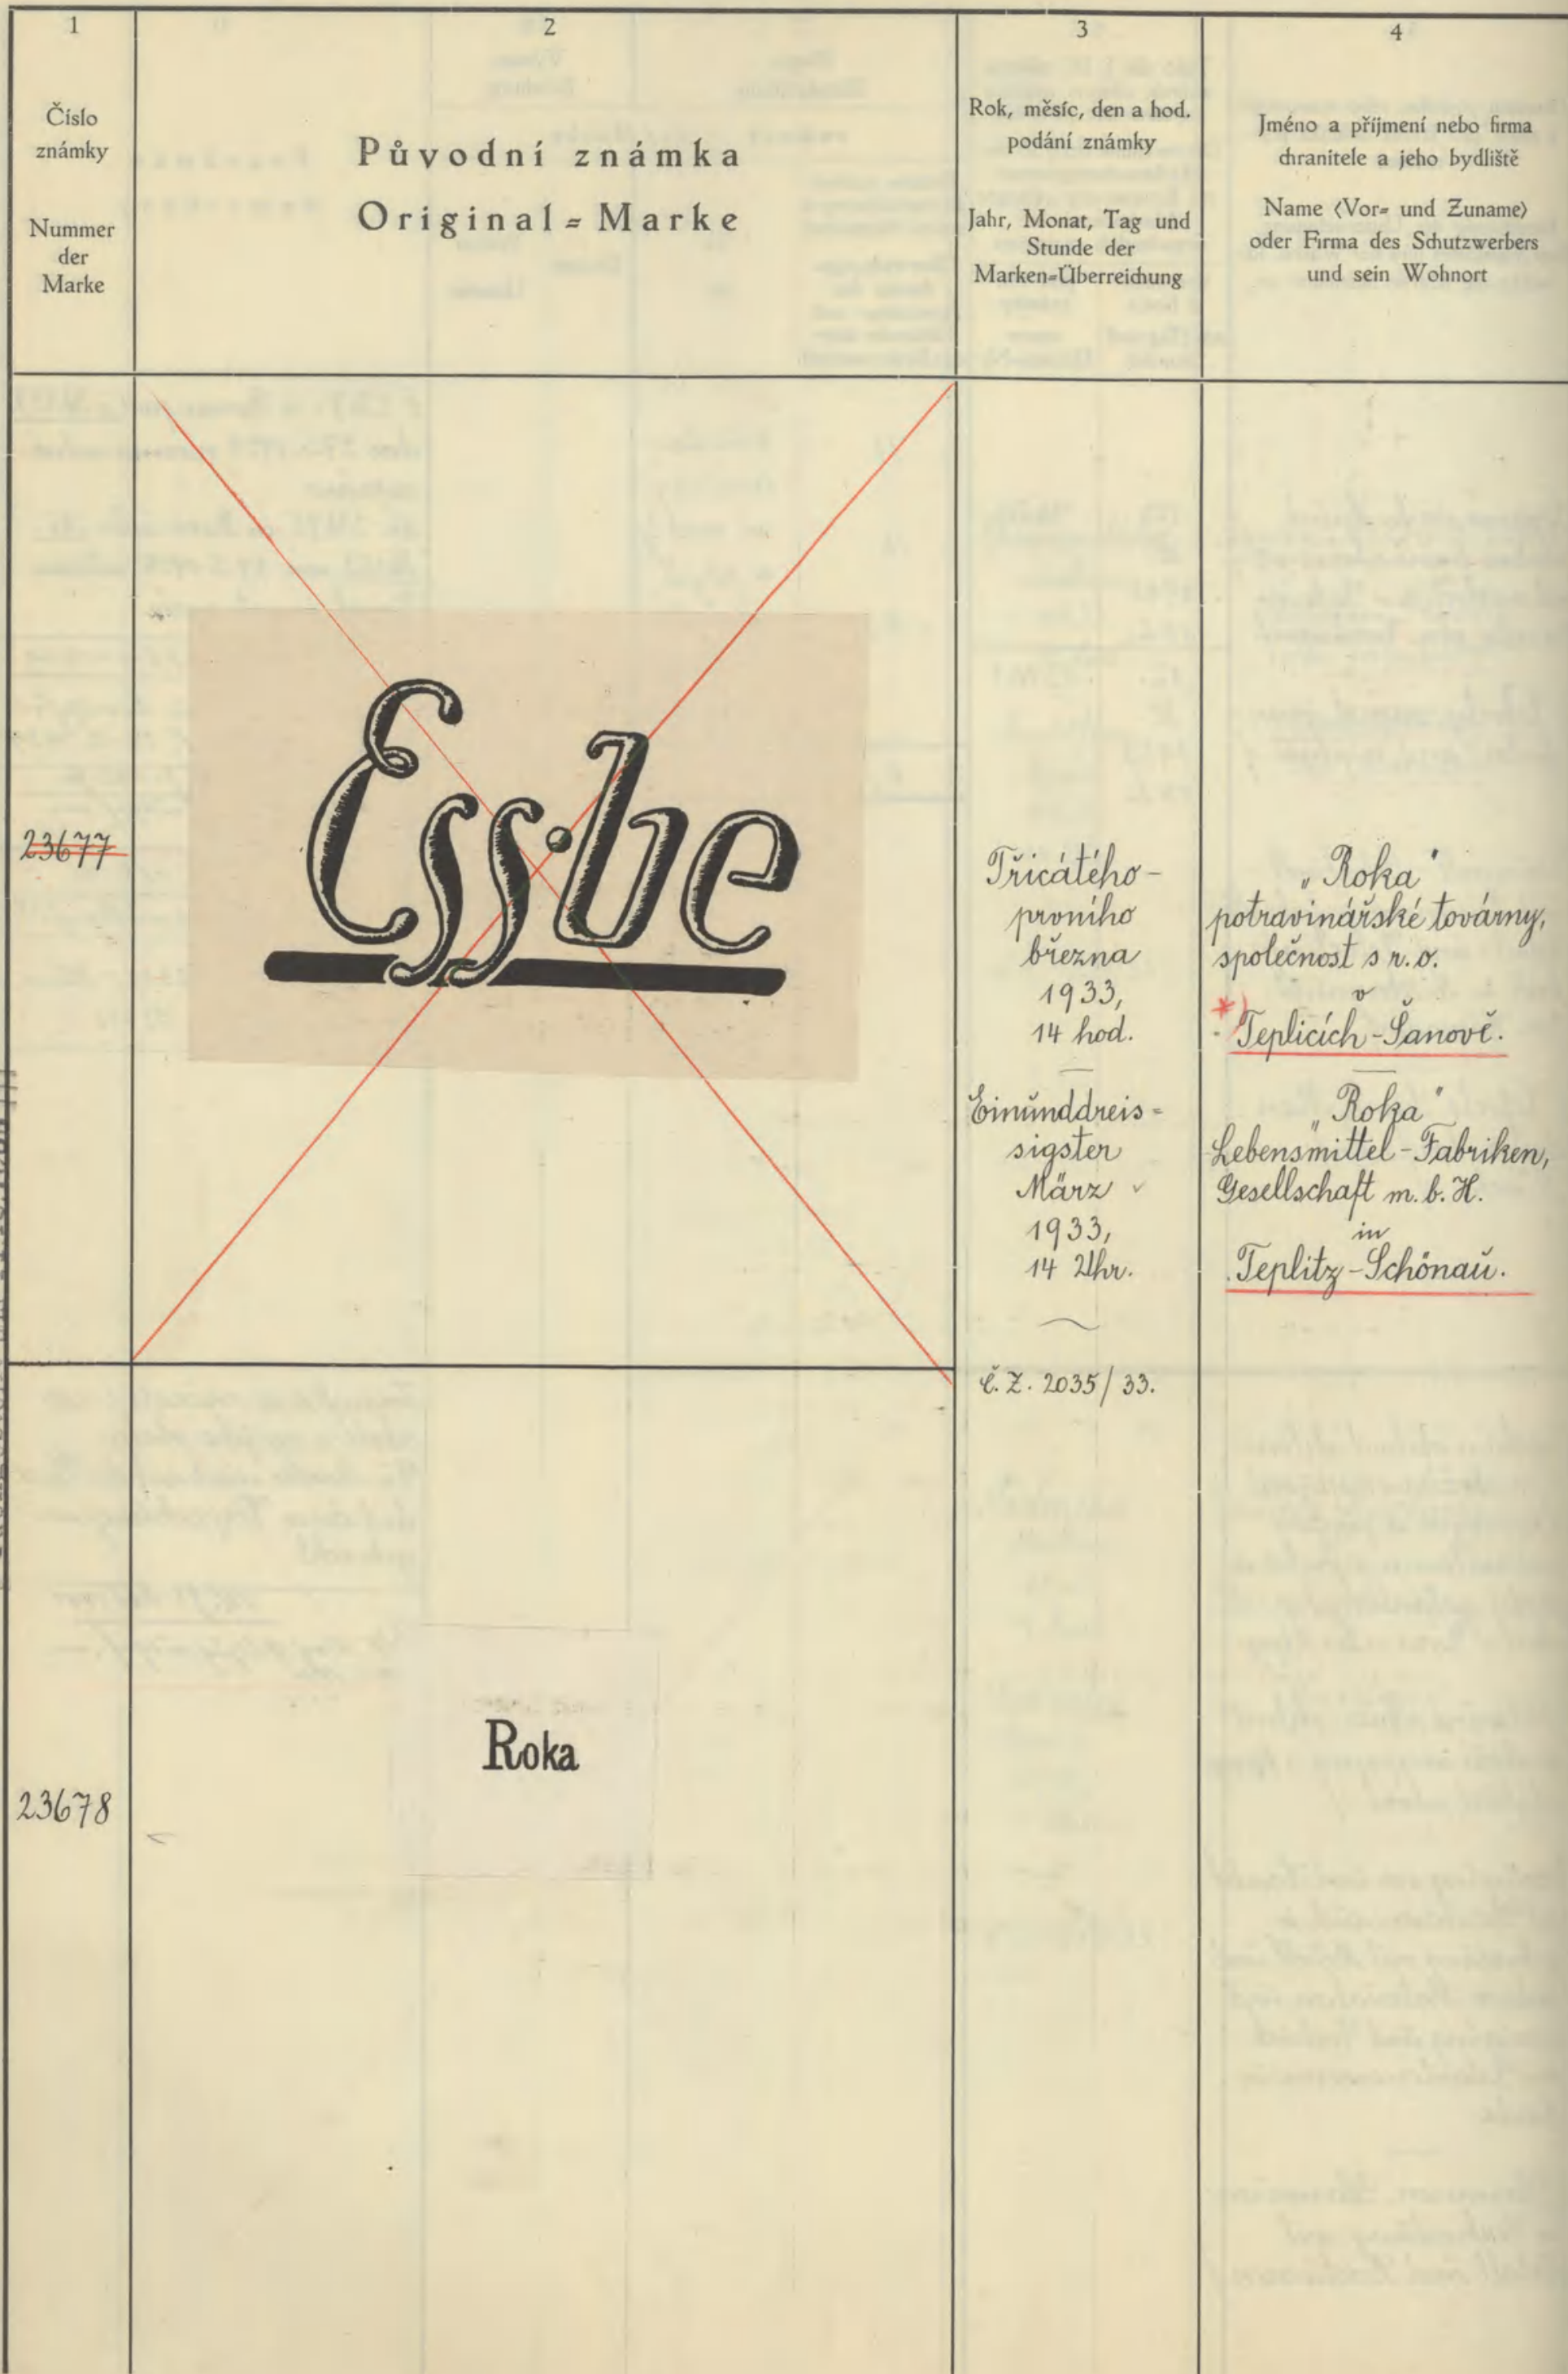 1
Číslo
známky
Nummer
der
Marke
2
Původní známka
Original=Marke
3
Rok, měsíc, den a hod.
podání známky
Jahr, Monat, Tag und
Stunde der
Marken=Überreichung
4
Jméno a příjmení nebo firma
chranitele a jeho bydliště
Name (Vor= und Zuname)
oder Firma des Schutzwerbers
und sein Wohnort
23677
Ess·be
Třicátého-
prvního
března
1933,
14 hod.
Einunddreis=
sigster
März
1933,
14 Uhr.
č. Z. 2035/33.
„Roka"
potravinářské továrny,
společnost s r.o.
v
*) Teplicích-Šanově.
„Roka"
Lebensmittel-Fabriken,
Gesellschaft m. b. H.
in
Teplitz-Schönau.
23678
Roka